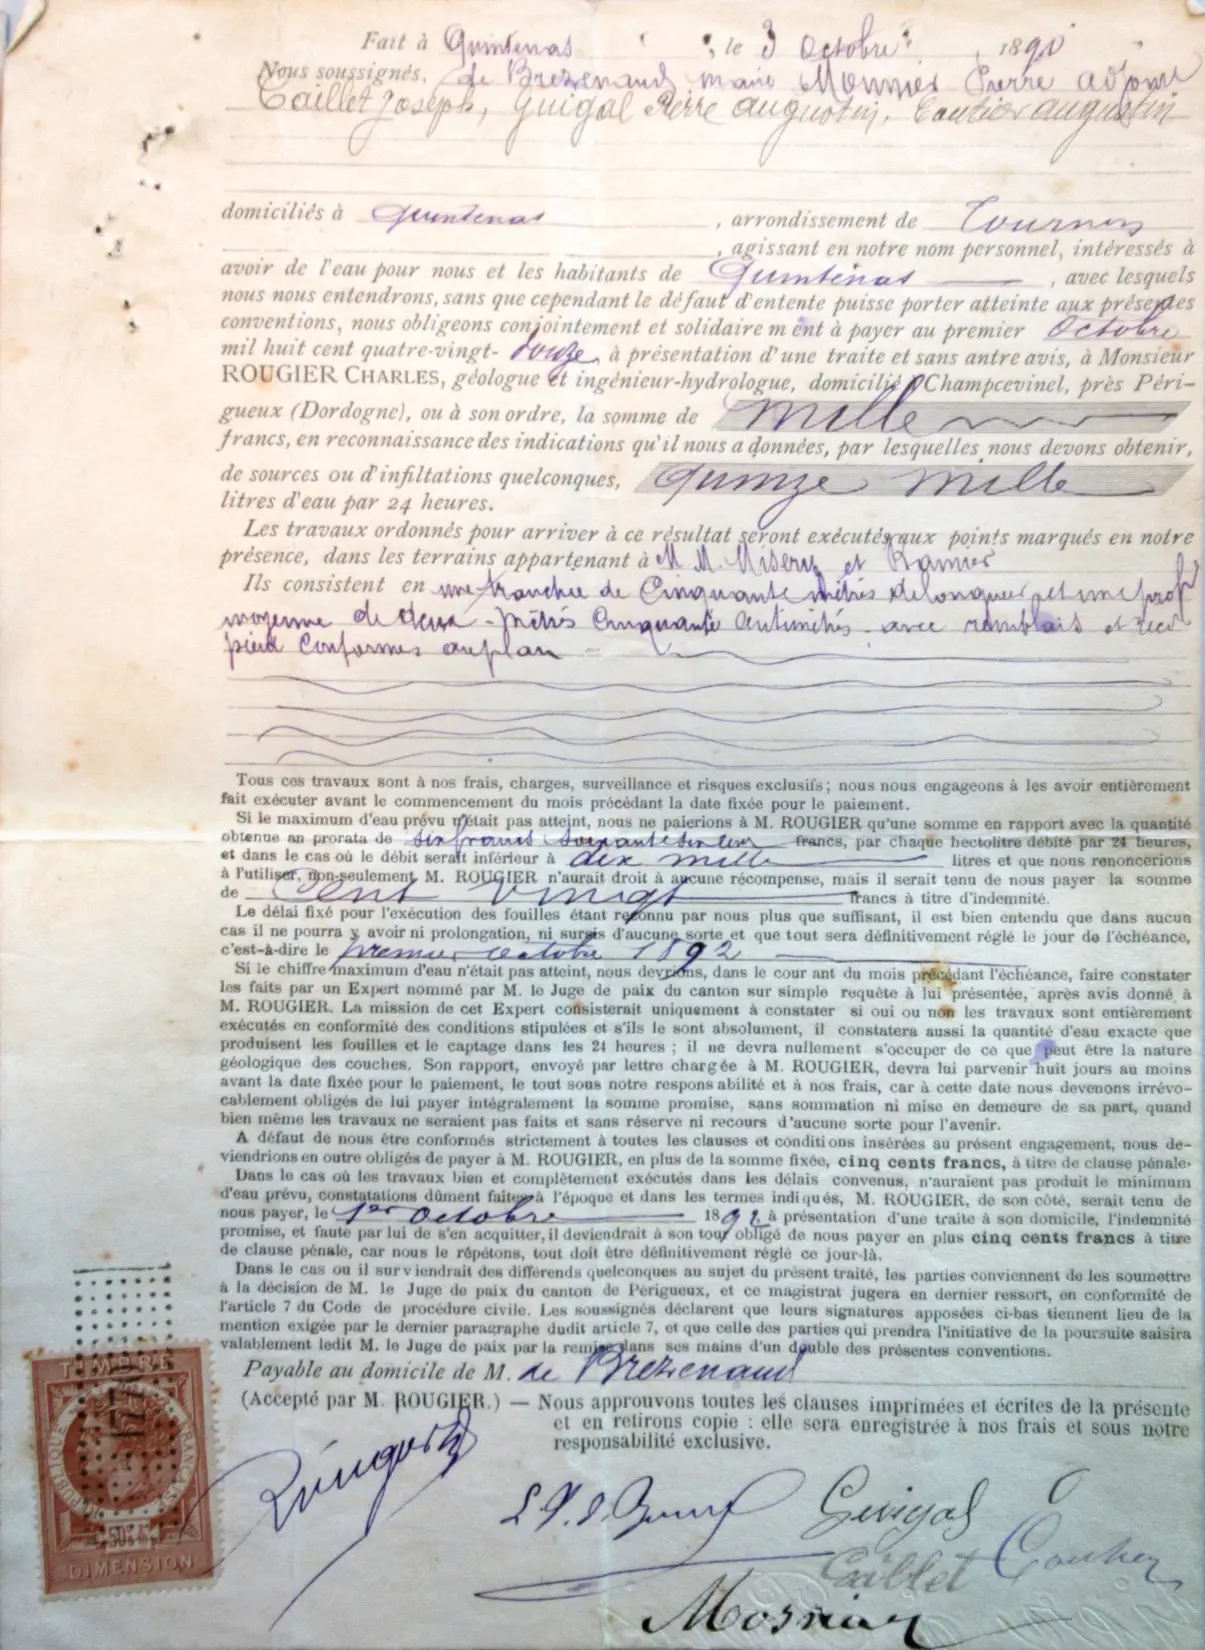 Fait à Quintenas, le 3 Octobre 1890
Nous soussignés, de Brezenaud maire Monnier Pierre adjoint
Caillet Joseph, Guigal Pierre augustin, Coutier augustin
domiciliés à Quintenas, arrondissement de Tournon
, agissant en notre nom personnel, intéressés à
avoir de l'eau pour nous et les habitants de Quintenas, avec lesquels
nous nous entendrons, sans que cependant le défaut d'entente puisse porter atteinte aux présentes
conventions, nous obligeons conjointement et solidaire m ent à payer au premier Octobre
mil huit cent quatre-vingt-douze, à présentation d'une traite et sans antre avis, à Monsieur
ROUGIER CHARLES, géologue et ingénieur-hydrologue, domicilié à Champcevinel, près Péri-
gueux (Dordogne), ou à son ordre, la somme de mille
francs, en reconnaissance des indications qu'il nous a données, par lesquelles nous devons obtenir,
de sources ou d'infiltations quelconques, quinze mille
litres d'eau par 24 heures.
Les travaux ordonnés pour arriver à ce résultat seront exécutés aux points marqués en notre
présence, dans les terrains appartenant à M M. Misery et Ramier
Ils consistent en une tranchée de Cinquante mètres de longueur et une prof
moyenne de deux mètres Cinquante Centimètres avec remblais et
pied Conformes au plan
Tous ces travaux sont à nos frais, charges, surveillance et risques exclusifs; nous nous engageons à les avoir entièrement
fait exécuter avant le commencement du mois précédant la date fixée pour le paiement.
Si le maximum d'eau prévu n'était pas atteint, nous ne paierions à M. ROUGIER qu'une somme en rapport avec la quantité
obtenue an prorata de six francs soixante six francs, par chaque hectolitre débité par 24 heures,
et dans le cas où le débit serait inférieur à dix mille litres et que nous renoncerions
à l'utiliser, non-seulement M. ROUGIER n'aurait droit à aucune récompense, mais il serait tenu de nous payer la somme
de Cent vingt francs à titre d'indemnité.
Le délai fixé pour l'exécution des fouilles étant reconnu par nous plus que suffisant, il est bien entendu que dans aucun
cas il ne pourra y avoir ni prolongation, ni sursis d'aucune sorte et que tout sera définitivement réglé le jour de l'échéance,
c'est-à-dire le premier octobre 1892
Si le chiffre maximum d'eau n'était pas atteint, nous devrions, dans le cour ant du mois précédant l'échéance, faire constater
les faits par un Expert nommé par M. le Juge de paix du canton sur simple requête à lui présentée, après avis donné à
M. ROUGIER. La mission de cet Expert consisterait uniquement à constater si oui ou non les travaux sont entièrement
exécutés en conformité des conditions stipulées et s'ils le sont absolument, il constatera aussi la quantité d'eau exacte que
produisent les fouilles et le captage dans les 24 heures; il ne devra nullement s'occuper de ce que peut être la nature
géologique des couches. Son rapport, envoyé par lettre chargée à M. ROUGIER, devra lui parvenir huit jours au moins
avant la date fixée pour le paiement, le tout sous notre respons abilité et à nos frais, car à cette date nous devenons irrévo-
cablement obligés de lui payer intégralement la somme promise, sans sommation ni mise en demeure de sa part, quand
bien même les travaux ne seraient pas faits et sans réserve ni recours d'aucune sorte pour l'avenir.
A défaut de nous être conformés strictement à toutes les clauses et conditi ons insérées au présent engagement, nous de-
viendrions en outre obligés de payer à M. ROUGIER, en plus de la somme fixée, cinq cents francs, à titre de clause pénale.
Dans le cas où les travaux bien et complètement exécutés dans les délais convenus, n'auraient pas produit le minimum
d'eau prévu, constatations dûment faites à l'époque et dans les termes indiqués, M. ROUGIER, de son côté, serait tenu de
nous payer, le 1er octobre 1892 à présentation d'une traite à son domicile, l'indemnité
promise, et faute par lui de s'en acquitter, il deviendrait à son tour obligé de nous payer en plus cinq cents francs à titre
de clause pénale, car nous le répétons, tout doit être définitivement réglé ce jour-là.
Dans le cas ou il surviendrait des différends quelconques au sujet du présent traité, les parties conviennent de les soumettre
à la décision de M. le Juge de paix du canton de Périgueux, et ce magistrat jugera en dernier ressort, en conformité de
l'article 7 du Code de procédure civile. Les soussignés déclarent que leurs signatures apposées ci-bas tiennent lieu de la
mention exigée par le dernier paragraphe dudit article 7, et que celle des parties qui prendra l'initiative de la poursuite saisira
valablement ledit M. le Juge de paix par la remise dans ses mains d'un double des présentes conventions.
Payable au domicile de M. de Brezenaud
(Accepté par M. ROUGIER.) — Nous approuvons toutes les clauses imprimées et écrites de la présente
et en retirons copie : elle sera enregistrée à nos frais et sous notre
responsabilité exclusive.
TIMBRE
RÉPUBLIQUE FRANÇAISE
DIMENSION
Guigal
Caillet Coutier
Mosnier